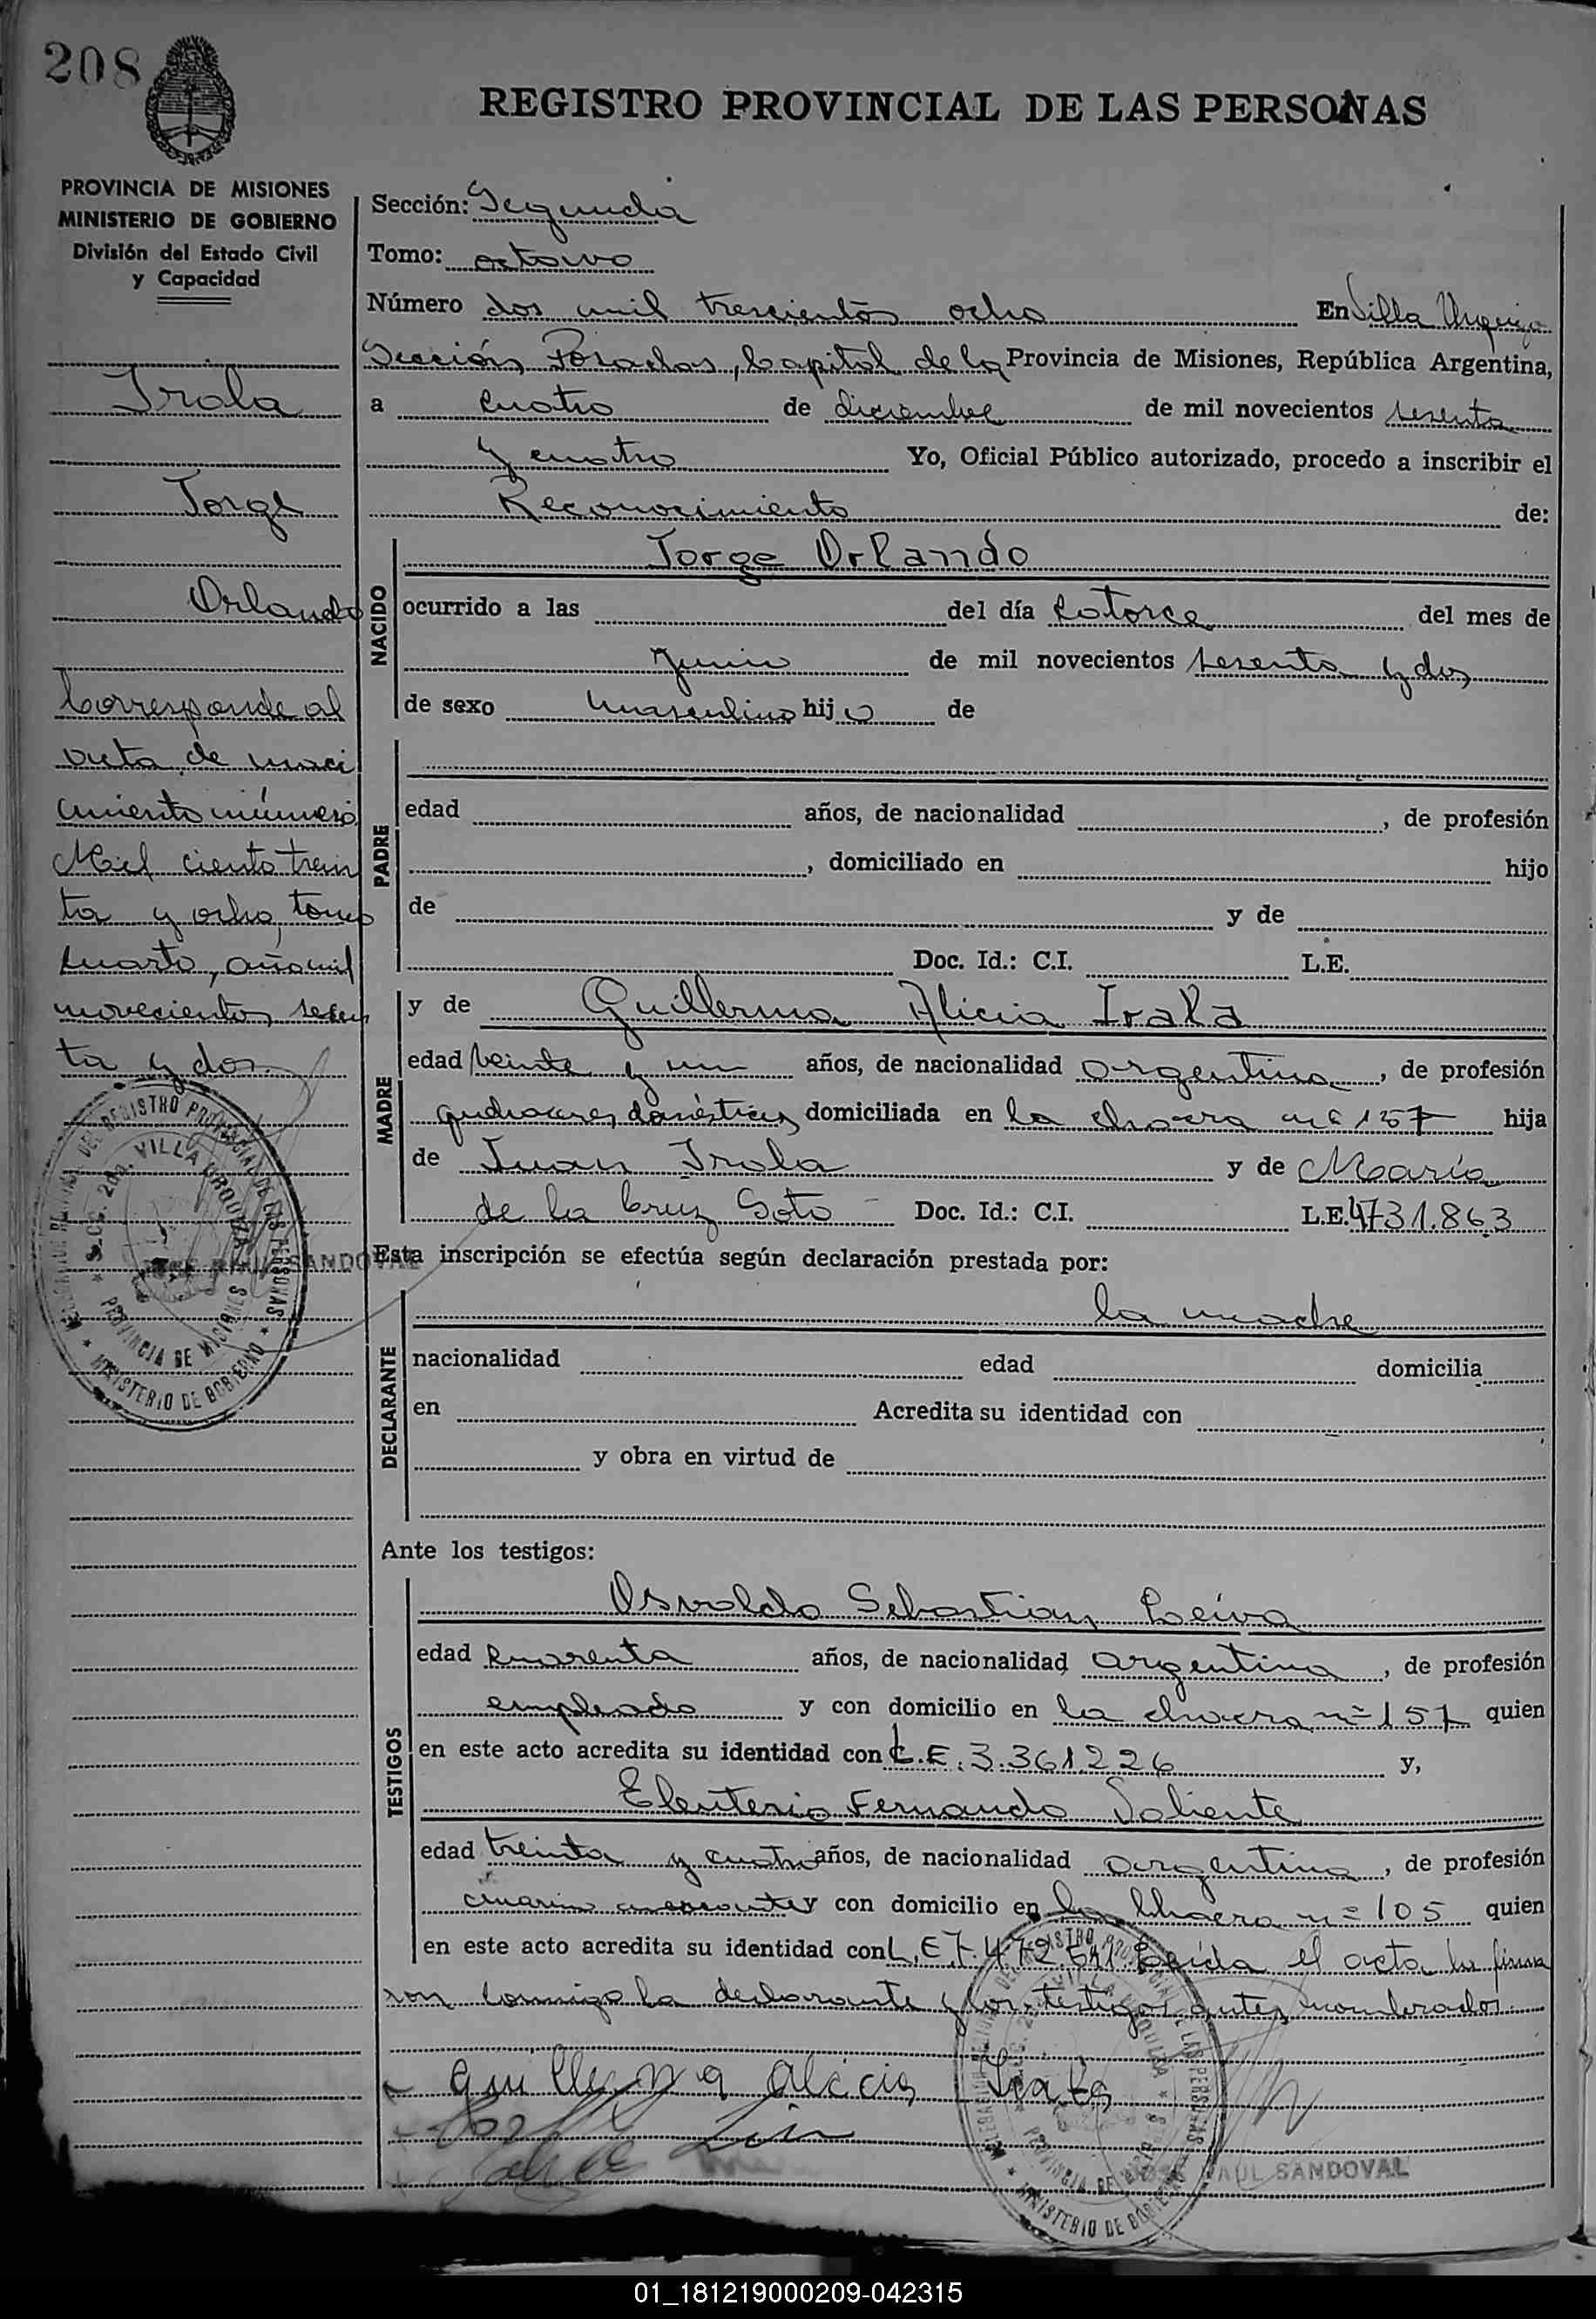 208
REGISTRO PROVINCIAL DE LAS PERSONAS
PROVINCIA DE MISIONES
MINISTERIO DE GOBIERNO
División del Estado Civil
y Capacidad
Irala
Jorge
Orlando
Corresponde al
acta de naci
miento número
Mil ciento trein
ta y ocho, tomo
cuarto, año mil
novecientos sesen
ta y dos.
Sección: Segunda
Tomo: octavo
Número dos mil trescientos ocho En Villa Urquiza
Sección, Posadas, Capital de la Provincia de Misiones, República Argentina,
a cuatro de diciembre de mil novecientos sesenta
y cuatro Yo, Oficial Público autorizado, procedo a inscribir el
Reconocimiento de:
NACIDO
Jorge Orlando
ocurrido a las del día catorce del mes de
junio de mil novecientos sesenta y dos
de sexo masculino hijo de
PADRE
edad años, de nacionalidad , de profesión
, domiciliado en hijo
de y de
Doc. Id.: C.I. L.E.
MADRE
y de Guillerma Alicia Irala
edad veinte y un años, de nacionalidad argentina, de profesión
quehaceres domésticos domiciliada en la chacra nº 157 hija
de Juan Irala y de María
de la Cruz Soto Doc. Id.: C.I. L.E. 4731.863
Esta inscripción se efectúa según declaración prestada por:
DECLARANTE
la madre
nacionalidad edad domicilia
en Acredita su identidad con
y obra en virtud de
Ante los testigos:
TESTIGOS
Osvaldo Sebastian Leiva
edad cuarenta años, de nacionalidad argentina, de profesión
empleado y con domicilio en la chacra nº 157 quien
en este acto acredita su identidad con L.E. 3.361.226 y,
Eleuterio Fernando Valiente
edad treinta y cuatro años, de nacionalidad argentina, de profesión
y con domicilio en la chacra nº 105 quien
en este acto acredita su identidad con L.E. 7.472.641. Leída el acta la firma
ron conmigo la declarante y los testigos antes nombrados.
Guillerma Alicia Irala
RAUL SANDOVAL
SECC. 2da. VILLA URQUIZA
PROVINCIA DE MISIONES
MINISTERIO DE GOBIERNO
01_181219000209-042315